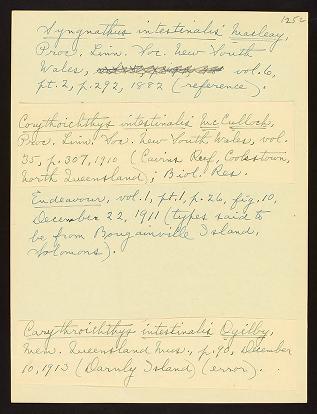 1252
Syngnathus intestinalis Macleay,
Proc. Linn. Soc. New South
Wales, vol. 6,
pt. 2, p. 292, 1882 (reference).
Corythoichthys intestinalis McCulloch,
Proc. Linn. Soc. New South Wales, vol.
35, p. 307, 1910 (Cairns Reef, Cookstown,
North Queensland); Biol. Res.
Endeavour, vol. 1, pt. 1, p. 26, fig. 10,
December 22, 1911 (types said to
be from Bougainville Island,
Solomons).
Corythroichthys intestinalis Ogilby,
Mem. Queensland Mus., p. 90, December
10, 1913 (Darnly Island) (error).